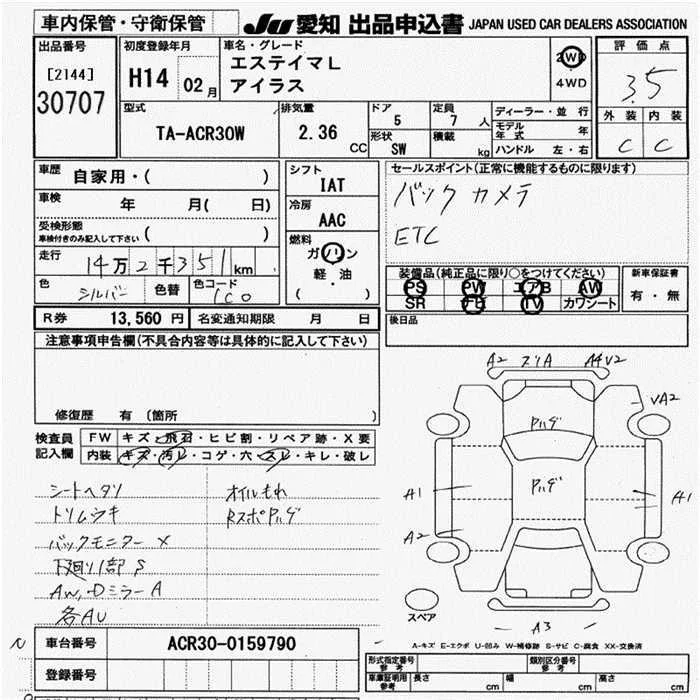 車内保管・守衛保管
JU 愛知 出品申込書 JAPAN USED CAR DEALERS ASSOCIATION
出品番号
[2144]
30707
初度登録年月
H14 02月
車名・グレード
エスティマL
アイラス
2WD
4WD
評価点
3.5
外装 内装
C C
型式
TA-ACR30W
排気量
2.36 CC
ドア
5
形状
SW
定員
7 人
積載
kg
ディーラー・並行
モデル年式 年
ハンドル 左・右
車歴
自家用・( )
車検
年 月( 日)
受検形態
車検付きのみ記入して下さい ( )
走行
14万2千351km
色
シルバー
色替
色コード
1C0
シフト
IAT
冷房
AAC
燃料
ガソリン
軽・油
( )
セールスポイント(正常に機能するものに限ります)
バックカメラ
ETC
装備品(純正品に限り○をつけてください)
PS PW エアB AW
SR ナビ TV カワシート
新車保証書
有・無
後日品
R券 13,560 円 名変通知期限 月 日
注意事項申告欄(不具合内容等は具体的に記入して下さい)
修復歴 有 (箇所 )
検査員
記入欄
FW キズ・飛石・ヒビ割・リペア跡・X要
内装 キズ・汚レ・コゲ・穴・スレ・キレ・破レ
シートヘタリ
トリムウキ
バックモニター X
下廻り1部 S
AW,Dミラー A
各AU
オイルもれ
RスポPハゲ
A2 スリA A4V2
VA2
Pハゲ
Pハゲ
A1
A1
A2
A3
スペア
A-キズ E-エクボ U-凹み W-補修跡 S-サビ C-腐食 XX-交換済
車台番号 ACR30-0159790
登録番号
形式指定番号
参考
類別区分番号
参考
車庫証明用
参考
長さ cm 幅 cm 高さ cm